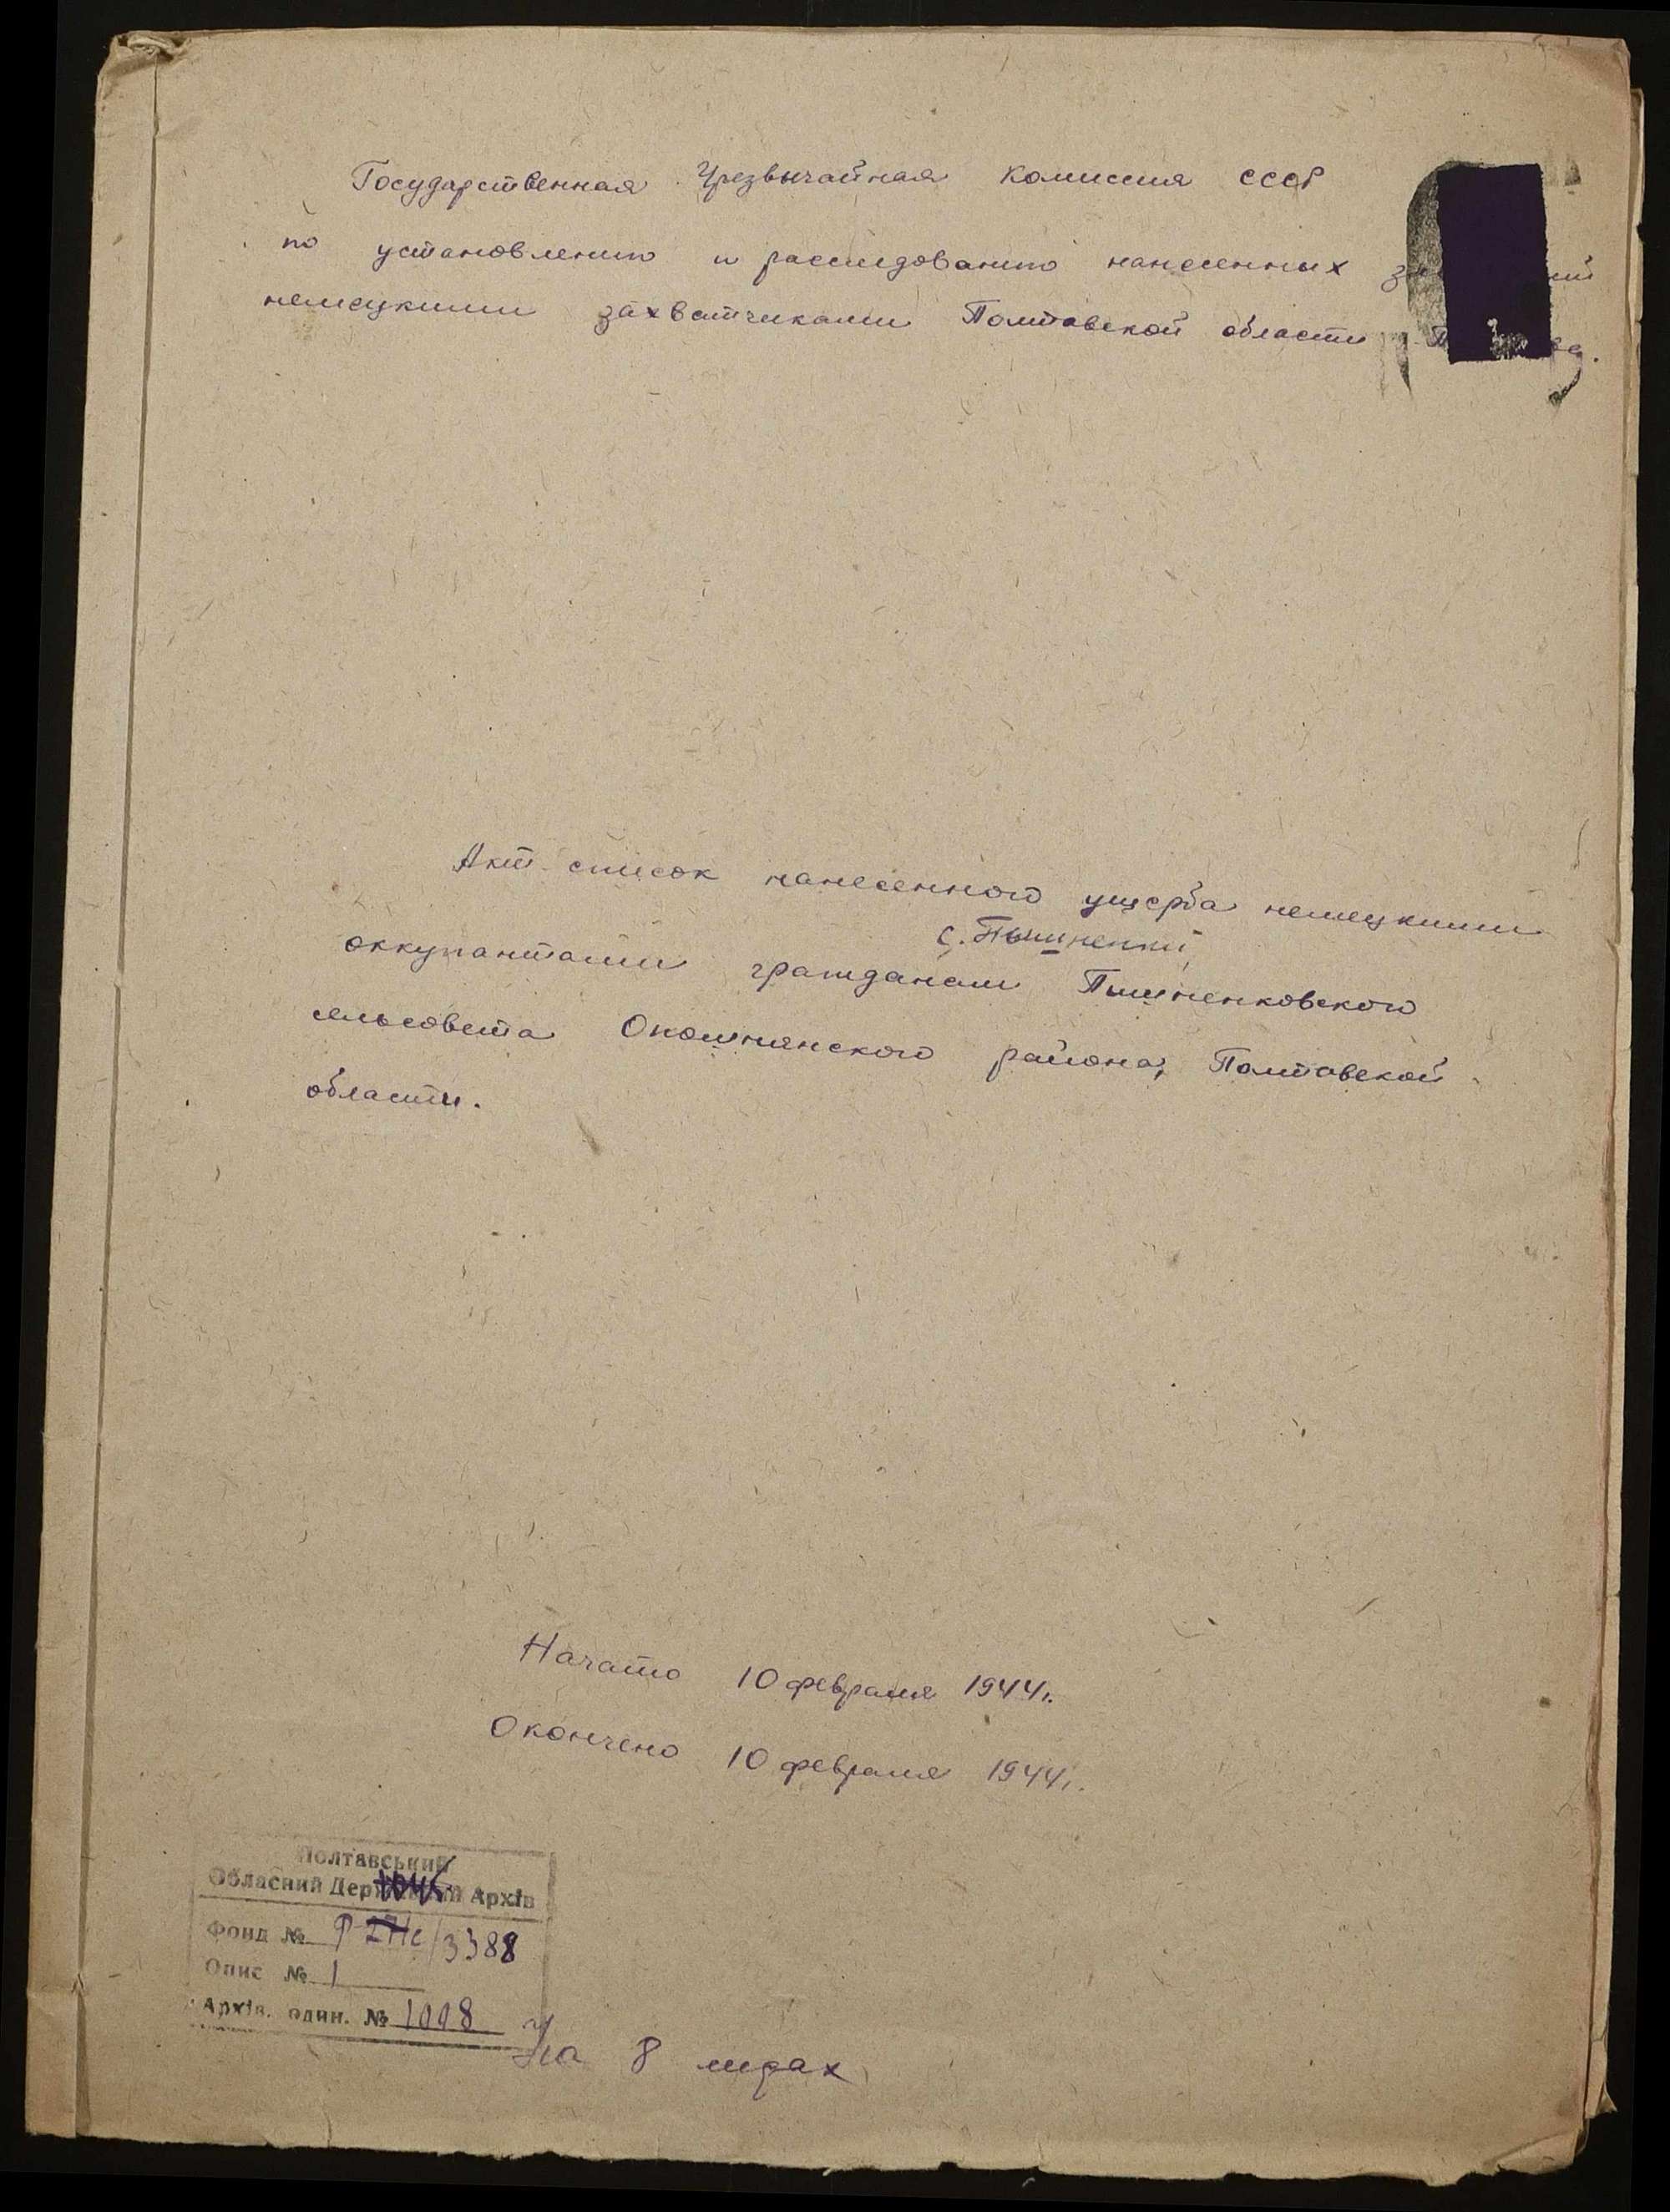 Государственная Чрезвычайная Комиссия СССР
по установлению и расследованию нанесенных
немецкими захватчиками Полтавской области
Акт список нанесенного ущерба немецкими
с.
оккупантами гражданам Пишненковского
сельсовета Опошнянского района, Полтавской
области.
Начато 10 февраля 1944г.
Окончено 10 февраля 1944г.
Полтавський
Обласний Державний Архів
Фонд № Р 3388
Опис № 1
Архів. один. №
На 8 листах